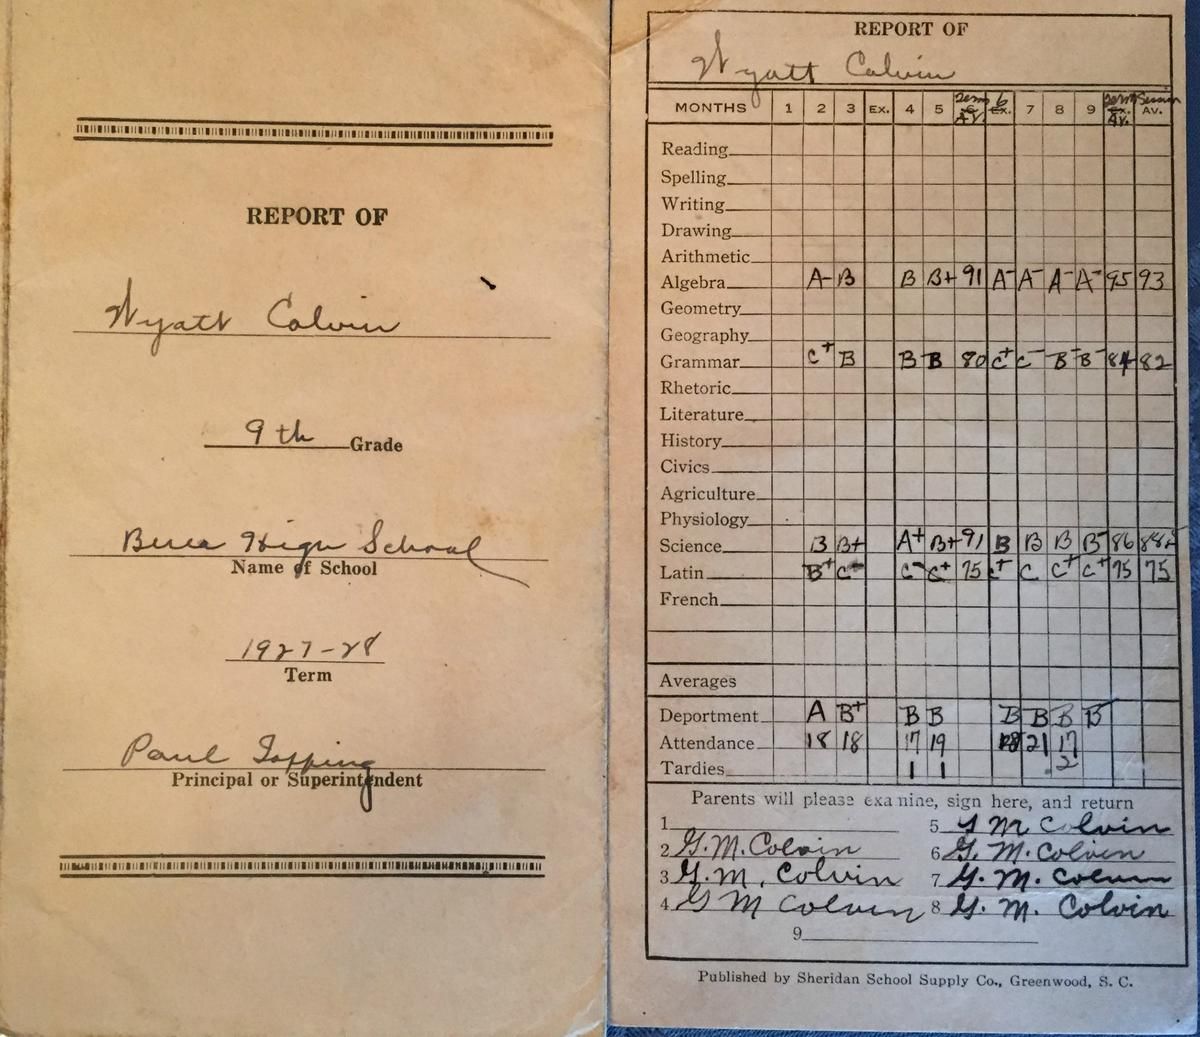 REPORT OF
Wyatt Colvin
9th Grade
Berea High School
Name of School
1927-28
Term
Paul Topping
Principal or Superintendent
REPORT OF
Wyatt Colvin
MONTHS 1 2 3 Ex. 4 5 Sem Av. 6 7 8 9 Sem Av. Session Av.
Reading
Spelling
Writing
Drawing
Arithmetic
Algebra A- B B B+ 91 A- A- A- A- 95 93
Geometry
Geography
Grammar C+ B B B 80 C+ C- B- B- 84 82
Rhetoric
Literature
History
Civics
Agriculture
Physiology
Science B B+ A+ B+ 91 B B B B- 86
Latin B+ C- C- C+ 75 C+ C C+ C+ 75 75
French
Averages
Deportment A B+ B B B B B B
Attendance 18 18 17 19 21 17
Tardies 1 1 2
Parents will please examine, sign here, and return
1
2 G. M. Colvin
3 G. M. Colvin
4 G M Colvin
5 G M Colvin
6 G. M. Colvin
7 G. M. Colvin
8 G. M. Colvin
9
Published by Sheridan School Supply Co., Greenwood, S. C.